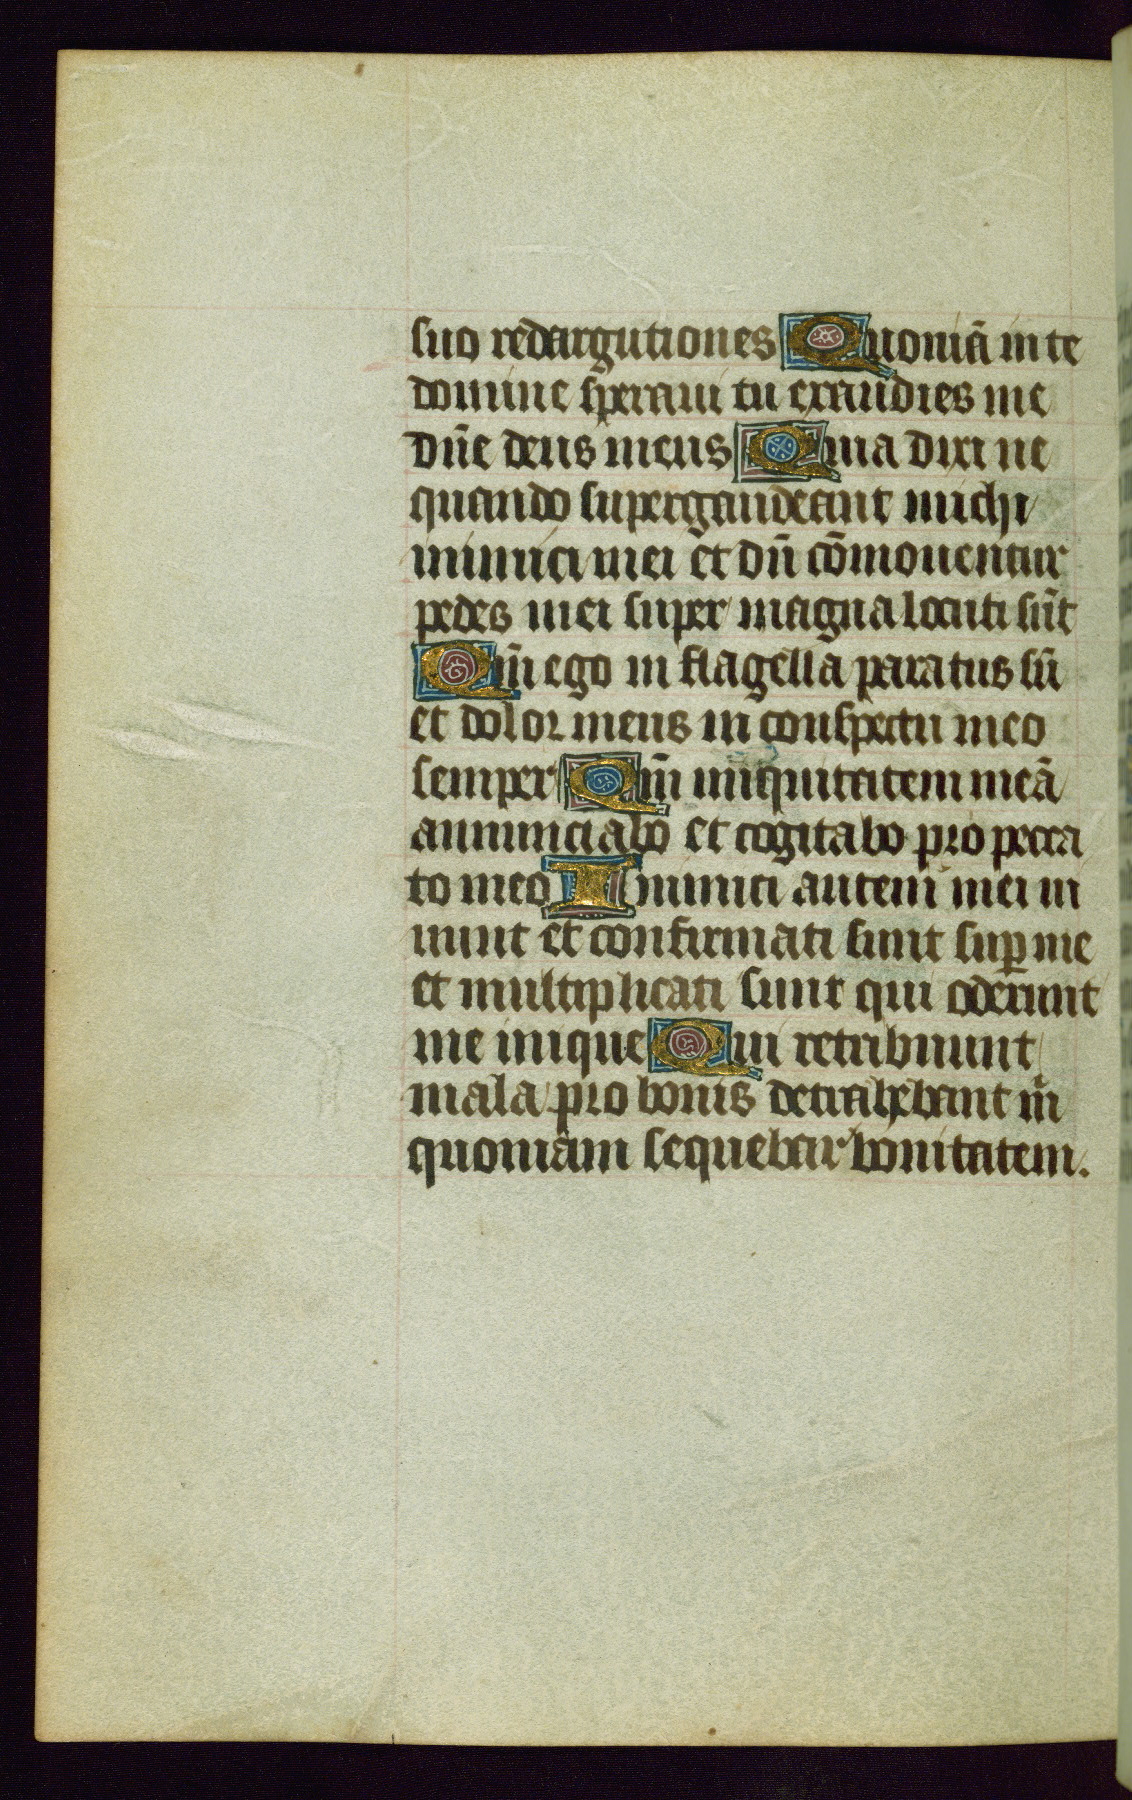 suo redargutiones Quoniā in te
domine speraui tu exaudies me
dn̄e deus meus Quia dixi ne
quando supergaudeant michi
inimici mei et dū cōmouentur
pedes mei super magna locuti sūt
Qm̄ ego in flagella paratus sū
et dolor meus in conspectu meo
semper Qm̄ iniquitatem meā
annunciabo et cogitabo pro pecca
to meo Inimici autem mei ui
uunt et confirmati sunt suꝑ me
et multiplicati sunt qui oderunt
me inique Qui retribuunt
mala pro bonis detrahebant m̄
quoniam sequebar bonitatem.